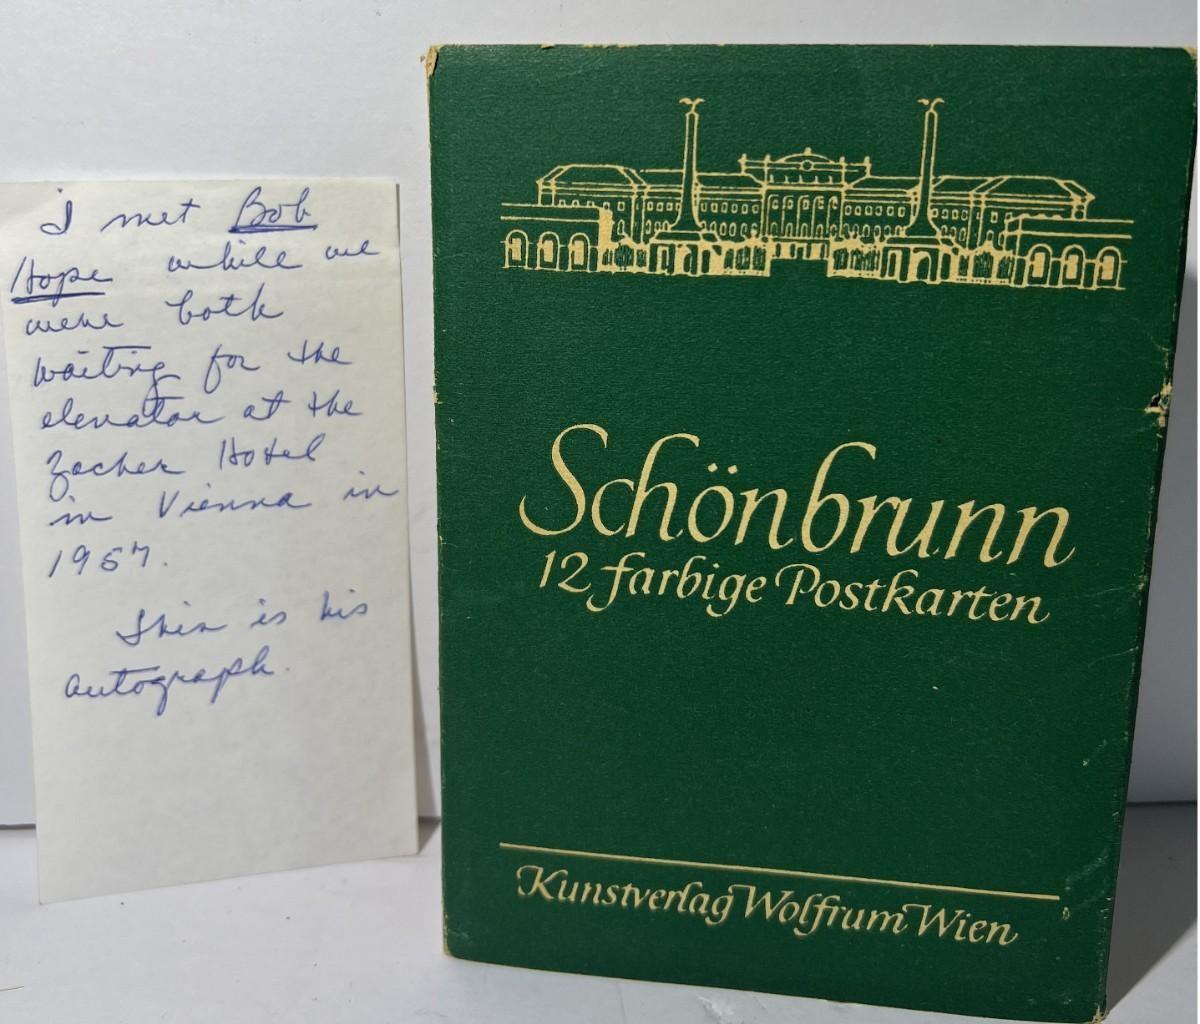 I met Bob
Hope while we
were both
waiting for the
elevator at the
Zacher Hotel
in Vienna in
1957.
This is his
autograph.
Schönbrunn
12 farbige Postkarten
Kunstverlag Wolfrum Wien